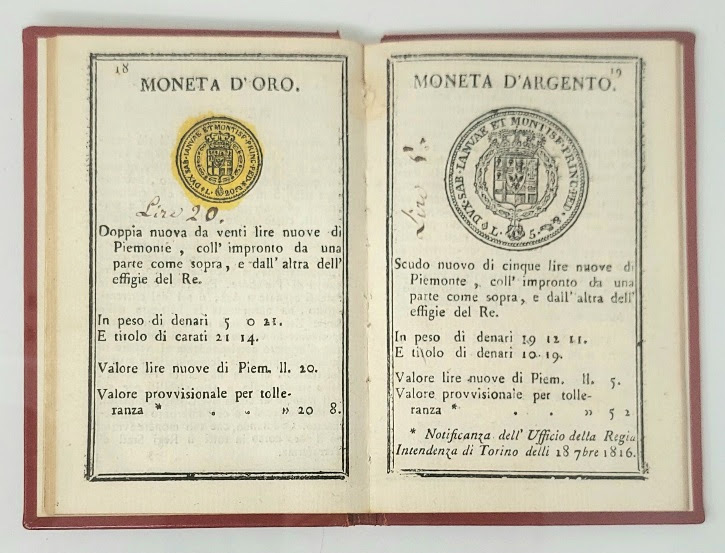 18
MONETA D'ORO.
DVX·SAB·IANVAE ET MONTISF·PRINC·PED·&
L· 20
Lire 20.
Doppia nuova da venti lire nuove di
Piemonte, coll' impronto da una
parte come sopra, e dall' altra dell'
effigie del Re.
In peso di denari 5 0 21.
E titolo di carati 21 14.
Valore lire nuove di Piem. ll. 20.
Valore provvisionale per tolle-
ranza * . . » 20 8.
19
MONETA D'ARGENTO.
DVX·SAB·IANVAE ET MONTISF·PRINC·PED·
L· 5·
Lire 5.
Scudo nuovo di cinque lire nuove di
Piemonte, coll' impronto da una
parte come sopra, e dall' altra dell'
effigie del Re.
In peso di denari 19 12 11.
E titolo di denari 10 19.
Valore lire nuove di Piem. ll. 5.
Valore provvisionale per tolle-
ranza * . . » 5 2
* Notificanza dell' Ufficio della Regia
Intendenza di Torino delli 18 7bre 1816.